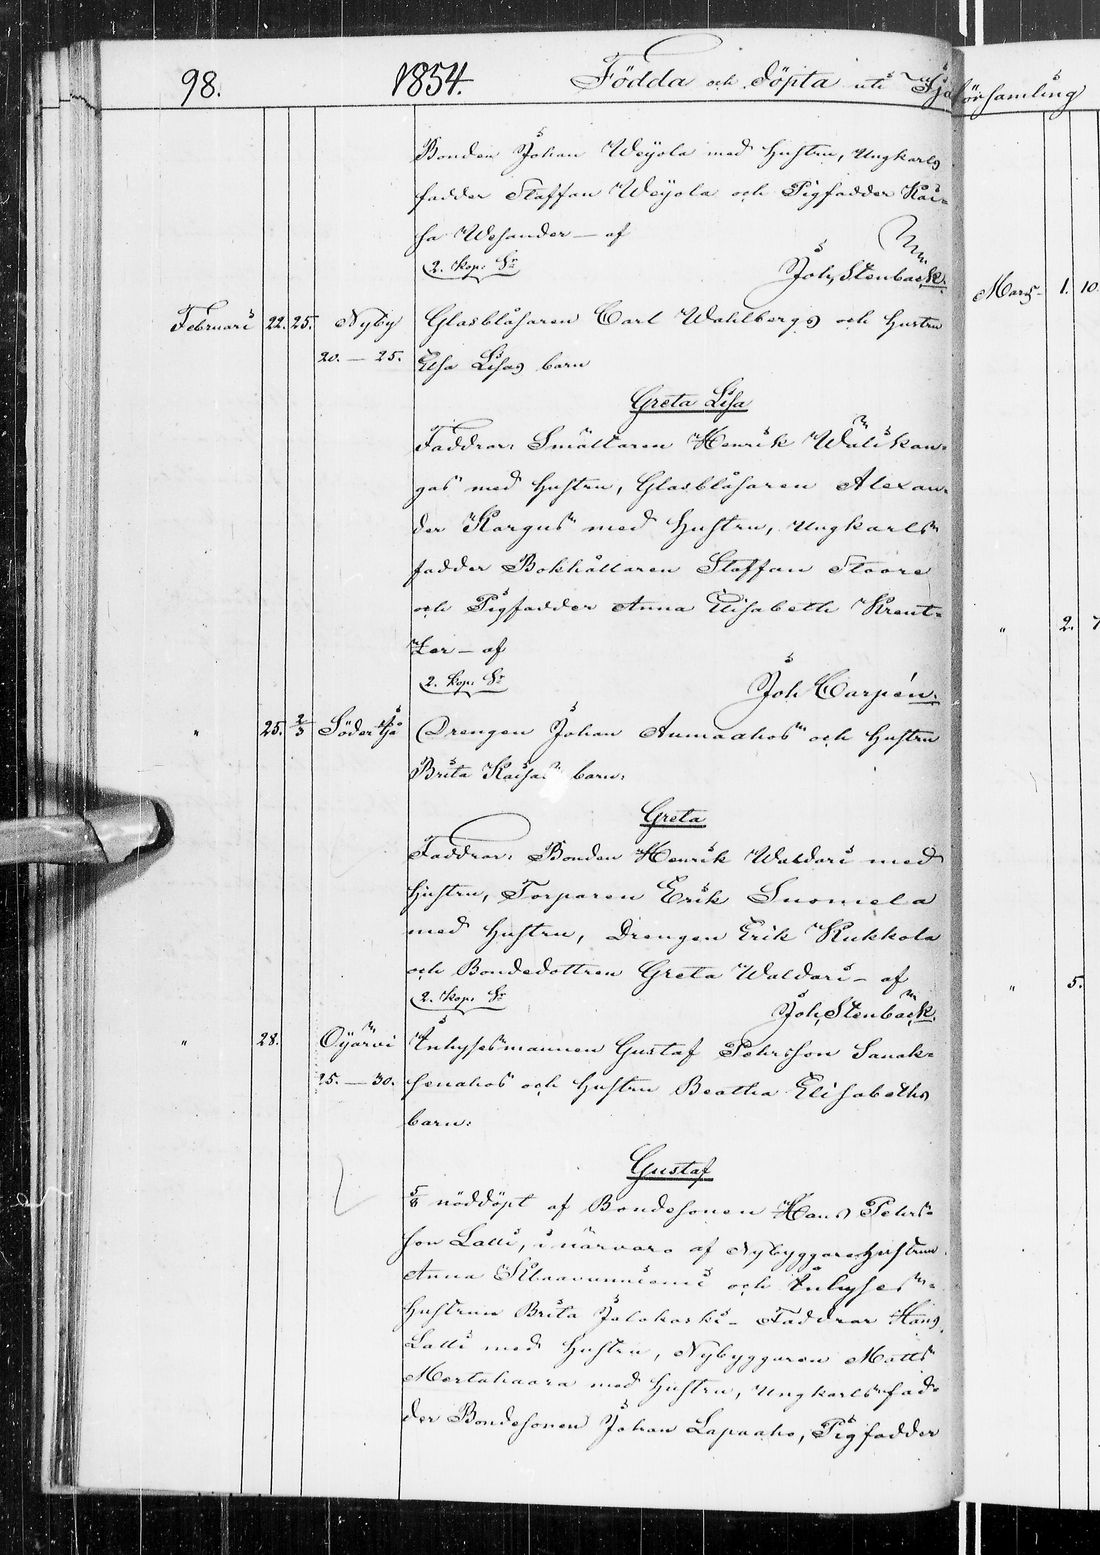 98. 1854. Födda och Döpta uti Ijo församling
Bonden Johan Weijola med hustru, Ungkarls
fadder Staffan Weijola och Pigfadder Kai-
sa Wesander — af
2. kop. Sr
Joh. Stenbäck.
Februari 22. 25. Nyby Glasblåsaren Carl Wahlbergs och hustru
20. — 25. Elsa Lisas barn
Greta Lisa
Faddrar: Smältaren Henrik Wälikan-
gas med hustru, Glasblåsaren Alexan-
der Kargus med hustru, Ungkarls
fadder Bokhållaren Staffan Stoore
och Pigfadder Anna Elisabeth Kreut-
zer — af
2. kop. Sr
Joh Carpén.
" 25. 2/3 Söder Ijo Drengen Johan Aumaahos och hustru
Brita Kaisas barn:
Greta
Faddrar: Bonden Henrik Waldari med
hustru, Torparen Erik Suomela
med hustru, Drengen Erik Kukkola
och Bondedottren Greta Waldari — af
2. kop. Sr
Joh. Stenbäck.
" 28. Oijärvi Inhysesmannen Gustaf Pehrsson Sanak-
25. — 30. senahos och hustru Beatha Elisabeths
barn:
Gustaf
nöddöpt af Bondesonen Hans Pehrs-
son Lalli, i närvaro af Nybyggarehustrun
Anna Klaavunniemi och Inhyses-
hustrun Brita Jalokoski — Faddrar Hans
Lalli med hustru, Nybyggaren Matts
Mertahaara med hustru, Ungkarlsfad-
der Bondesonen Johan Lapaaho, Pigfadder
Mars 1. 10
" 2. 7
" 5.